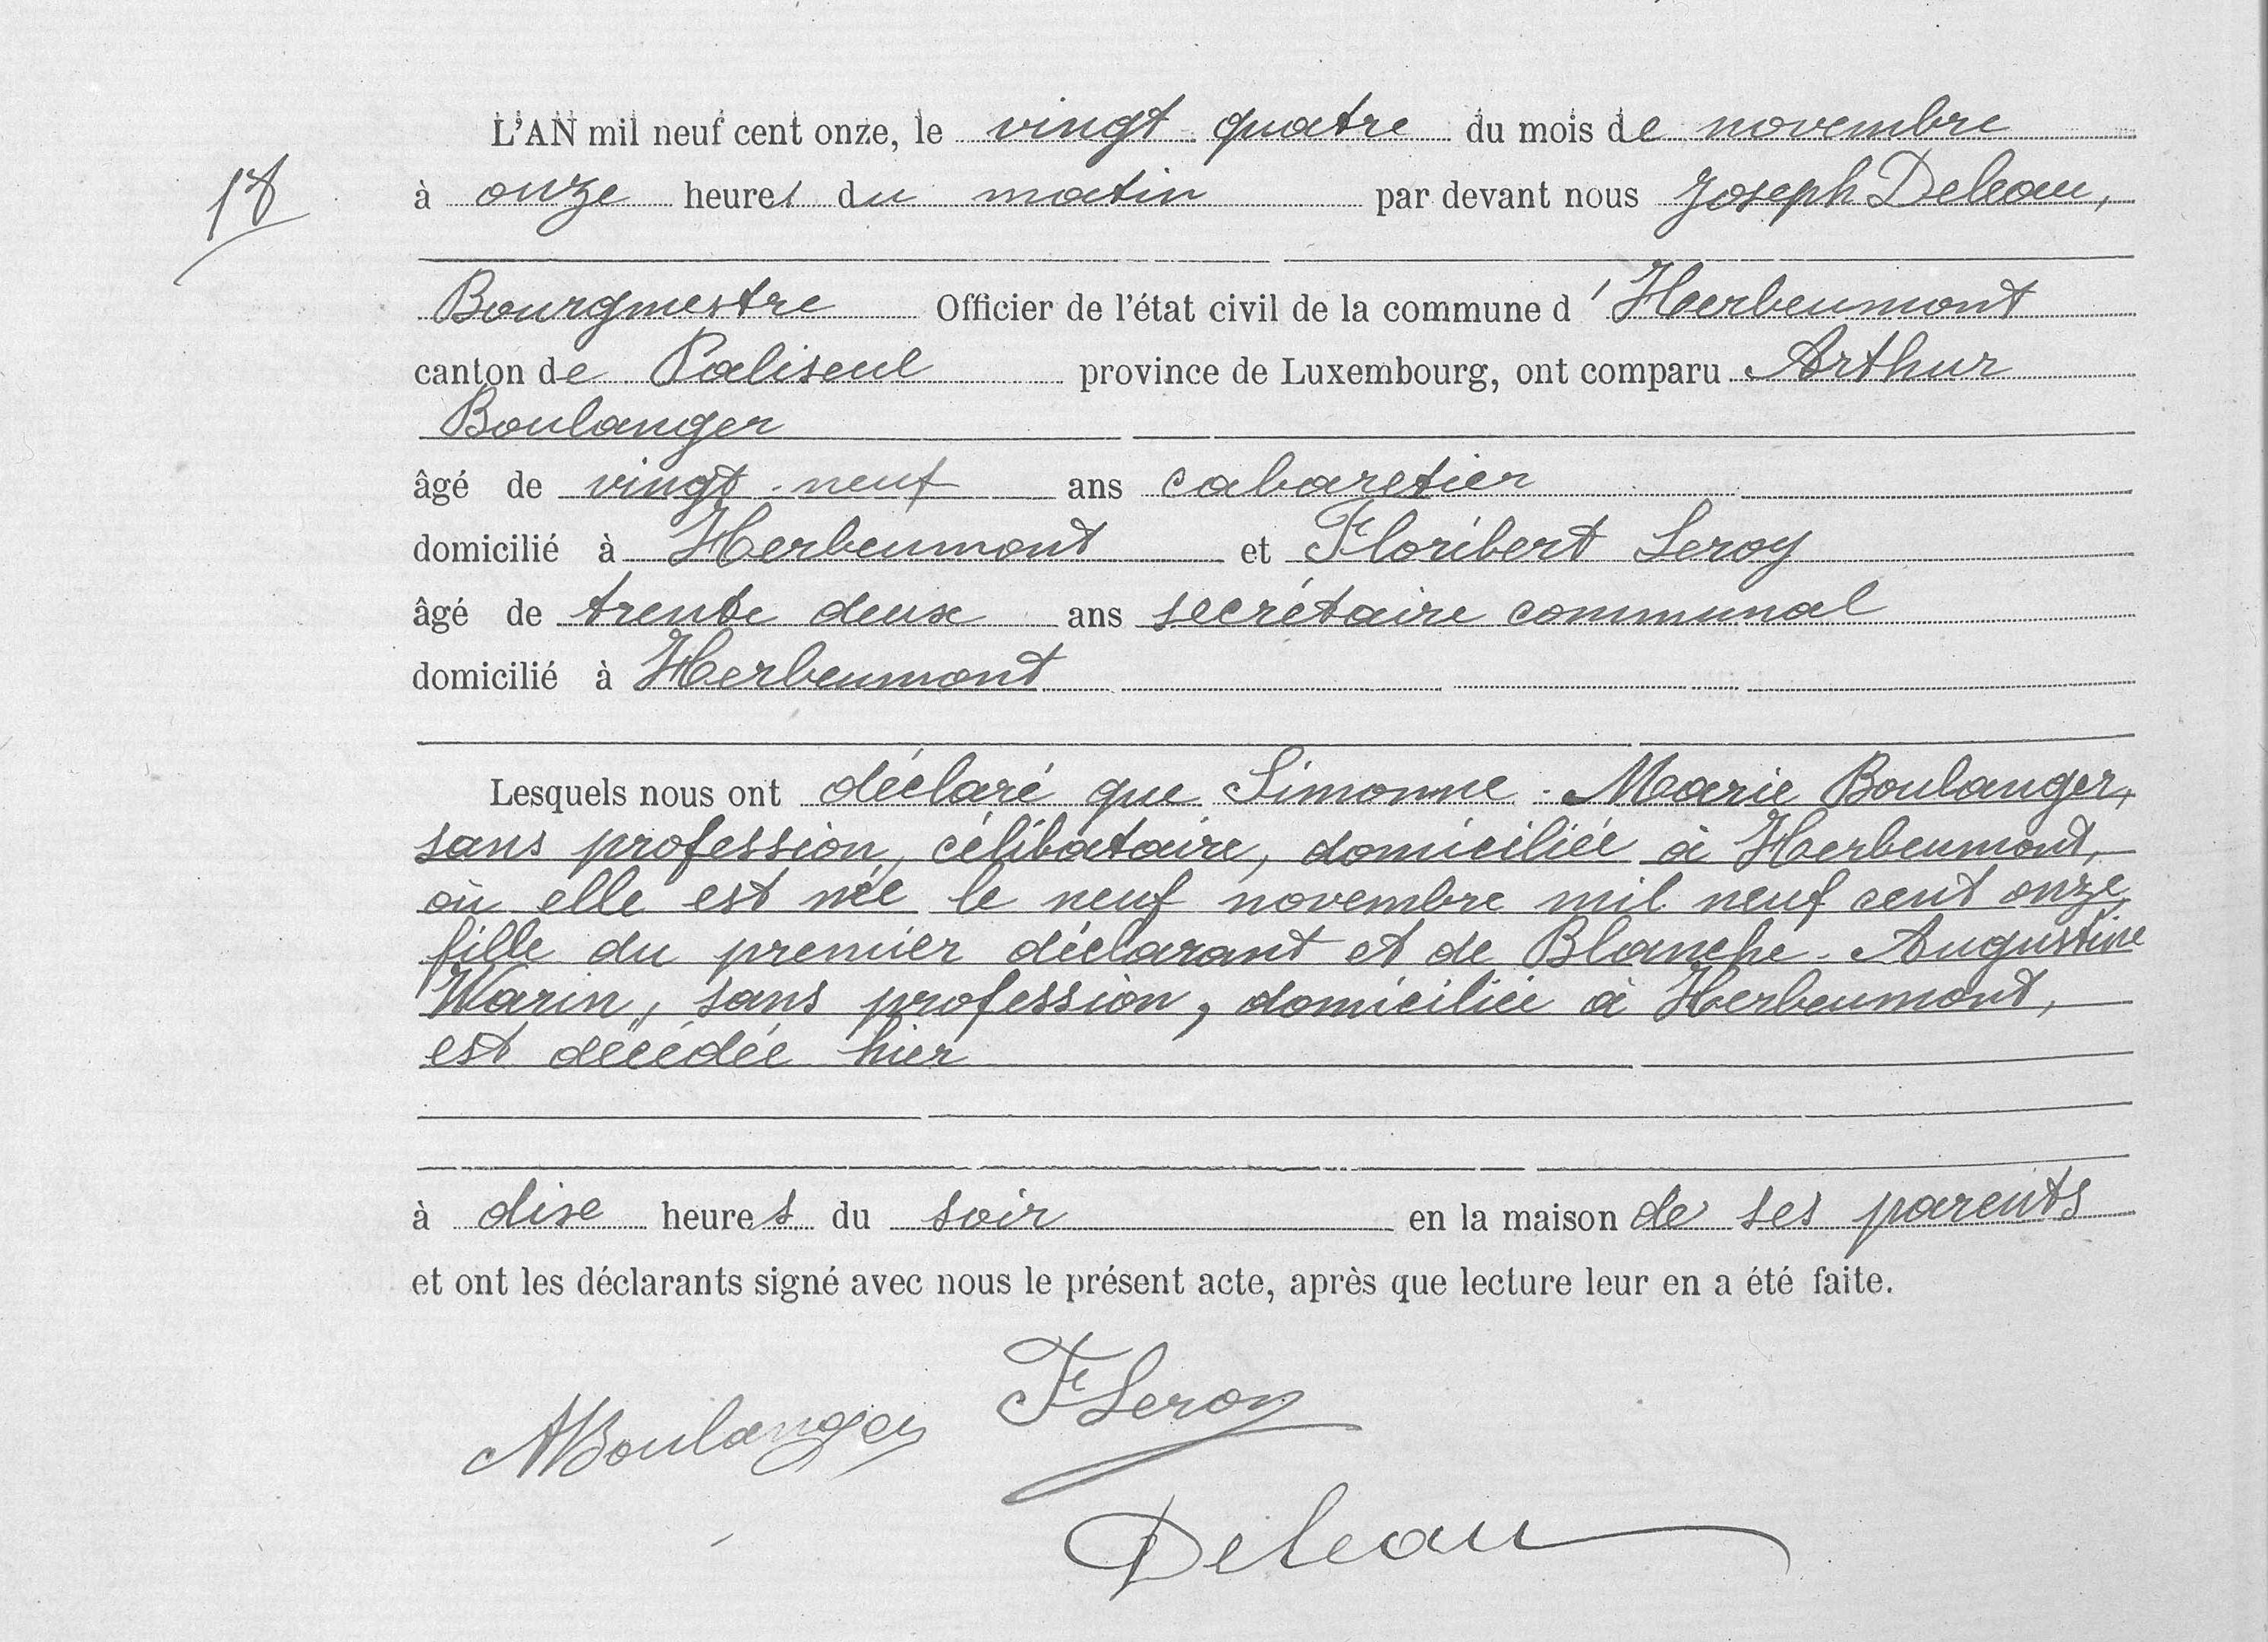 L'AN mil neuf cent onze, le vingt quatre du mois de novembre
18
à onze heures du matin par devant nous Joseph Deleau,
Bourgmestre Officier de l'état civil de la commune d'Herbeumont
canton de Paliseul province de Luxembourg, ont comparu Arthur
Boulanger
âgé de vingt-neuf ans cabaretier
domicilié à Herbeumont et Floribert Leroy
âgé de trente deux ans secrétaire communal
domicilié à Herbeumont
Lesquels nous ont déclaré que Simonne-Marie Boulanger,
sans profession, célibataire, domiciliée à Herbeumont,
où elle est née le neuf novembre mil neuf cent onze,
fille du premier déclarant et de Blanche-Augustine
Warin, sans profession, domiciliée à Herbeumont,
est décédée hier
à dix heures du soir en la maison de ses parents
et ont les déclarants signé avec nous le présent acte, après que lecture leur en a été faite.
ABoulanger FLeroy
Deleau